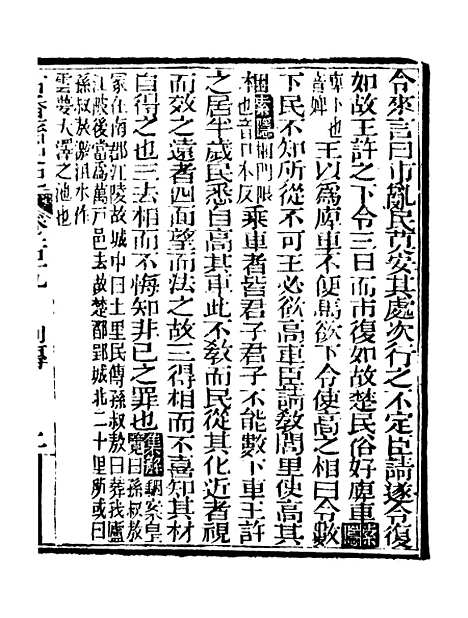 令來言曰市亂民莫安其處次行之不定臣請遂令復
如故王許之下令三日而市復如故楚民俗好庳車索隱
庳下也音婢王以爲庳車不便馬欲下令使高之相曰令數
下民不知所從不可王必欲高車臣請敎閭里使高其
梱索隱梱門限也音口本反乘車者皆君子君子不能數下車王許
之居半歲民悉自高其車此不敎而民從其化近者視
而效之遠者四面望而法之故三得相而不喜知其材
自得之也三去相而不悔知非己之罪也集解駰案皇覽曰孫叔敖
冢在南郡江陵故城中白土里民傳孫叔敖曰葬我廬
江陂後當爲萬戶邑去故楚都郢城北二十里所或曰
孫叔敖激沮水作
雲夢大澤之池也
列傳